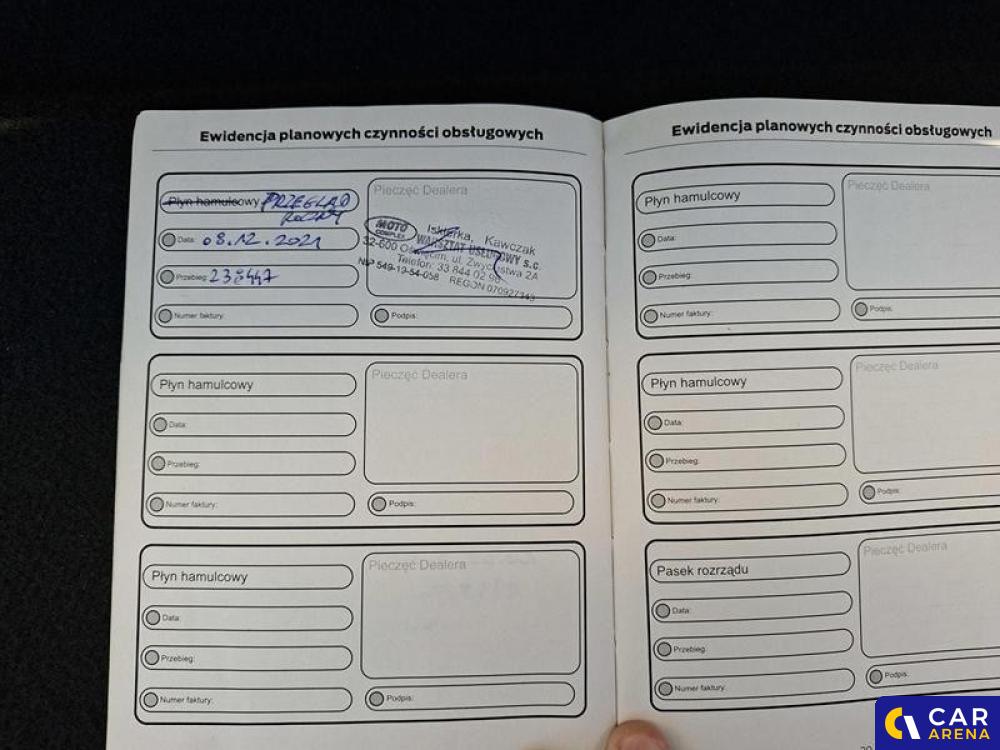 Ewidencja planowych czynności obsługowych
Płyn hamulcowy PRZEGLĄD
ROCZNY
Data: 08.12.2021
Przebieg: 238447
Numer faktury:
Pieczęć Dealera
MOTO
COMPLEX
Iskierka, Kawczak
WARSZTAT USŁUGOWY s.c.
32-600 Oświęcim, ul. Zwycięstwa 2A
Telefon: 33 844 02 96
NIP 549-19-54-058 REGON 070927343
Podpis:
Płyn hamulcowy
Data:
Przebieg:
Numer faktury:
Pieczęć Dealera
Podpis:
Płyn hamulcowy
Data:
Przebieg:
Numer faktury:
Pieczęć Dealera
Podpis:
Ewidencja planowych czynności obsługowych
Płyn hamulcowy
Data:
Przebieg:
Numer faktury:
Pieczęć Dealera
Podpis:
Płyn hamulcowy
Data:
Przebieg:
Numer faktury:
Pieczęć Dealera
Podpis:
Pasek rozrządu
Data:
Przebieg:
Numer faktury:
Pieczęć Dealera
Podpis:
CAR
ARENA